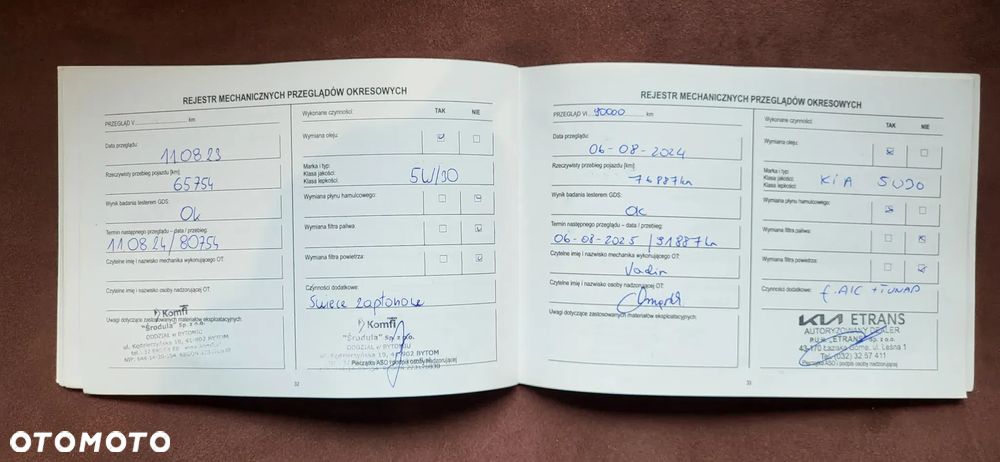 REJESTR MECHANICZNYCH PRZEGLĄDÓW OKRESOWYCH
PRZEGLĄD V km
Data przeglądu:
11.08.23
Rzeczywisty przebieg pojazdu [km]:
65754
Wynik badania testerem GDS:
Ok
Termin następnego przeglądu – data / przebieg:
11.08.24/80754
Czytelne imię i nazwisko mechanika wykonującego OT:
Czytelne imię i nazwisko osoby nadzorującej OT:
Komfi
"Środula" Sp. z o.o.
Uwagi dotyczące zastosowanych materiałów eksploatacyjnych:
ODDZIAŁ w BYTOMIU
ul. Kędzierzyńska 19, 41-902 BYTOM
32
Wykonane czynności: TAK NIE
Wymiana oleju:
Marka i typ:
Klasa jakości:
Klasa lepkości:
5W/30
Wymiana płynu hamulcowego:
Wymiana filtra paliwa:
Wymiana filtra powietrza:
Czynności dodatkowe:
Świece zapłonowe
Komfi
"Środula" Sp. z o.o.
ODDZIAŁ w BYTOMIU
ul. Kędzierzyńska 19, 41-902 BYTOM
Pieczątka ASO i podpis osoby nadzorującej
REJESTR MECHANICZNYCH PRZEGLĄDÓW OKRESOWYCH
PRZEGLĄD VI 90000 km
Data przeglądu:
06-08-2024
Rzeczywisty przebieg pojazdu [km]:
76887km
Wynik badania testerem GDS:
OK
Termin następnego przeglądu – data / przebieg:
06-08-2025 / 91887km
Czytelne imię i nazwisko mechanika wykonującego OT:
Czytelne imię i nazwisko osoby nadzorującej OT:
Uwagi dotyczące zastosowanych materiałów eksploatacyjnych:
33
Wykonane czynności: TAK NIE
Wymiana oleju:
Marka i typ:
Klasa jakości:
Klasa lepkości:
KIA 5W30
Wymiana płynu hamulcowego:
Wymiana filtra paliwa:
Wymiana filtra powietrza:
Czynności dodatkowe:
f. A/C
KIA ETRANS
AUTORYZOWANY DEALER
P.U.H. „ETRANS" sp. z o.o.
43-170 Łaziska Górne, ul. Leśna 1
Tel. (032) 32 57 411
Pieczątka ASO i podpis osoby nadzorującej
OTOMOTO